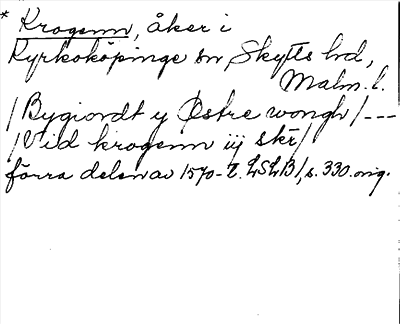 * Krogenn, åker i
Kyrkoköpinge sn Skytts hd,
Malm. l.
/Bygiordt y Østre wongh/---
/Vid krogenn iij skr/
förra delen av 1570-t. LSLB/, s. 330. orig.